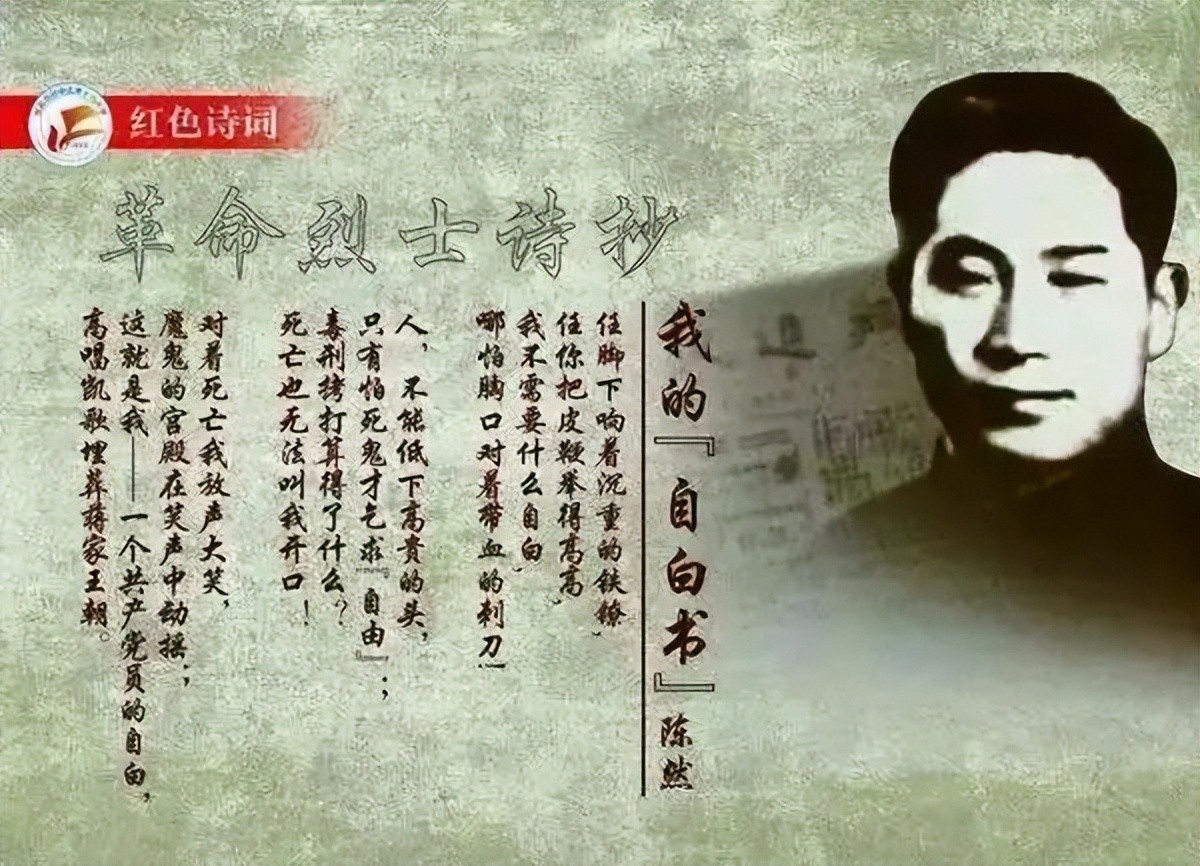 红色诗词
革命烈士诗抄
我的『自白书』陈然
任脚下响着沉重的铁镣,
任你把皮鞭举得高高,
我不需要什么自白,
哪怕胸口对着带血的刺刀!
人,不能低下高贵的头,
只有怕死鬼才乞求“自由”;
毒刑拷打算得了什么?
死亡也无法叫我开口!
对着死亡我放声大笑,
魔鬼的宫殿在笑声中动摇;
这就是我——一个共产党员的自白,
高唱凯歌埋葬蒋家王朝。